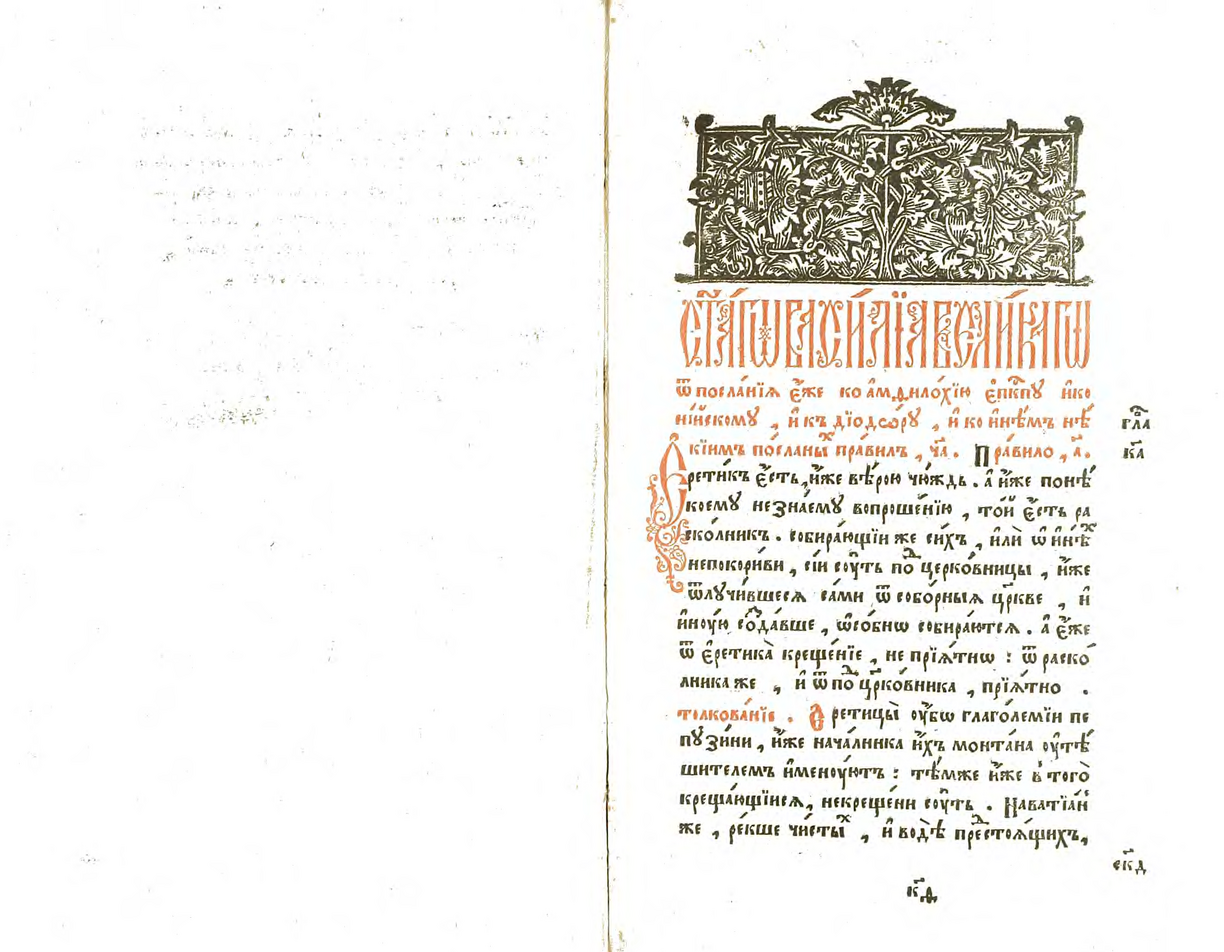 ст҃а́гѡ васи́лїа вели́кагѡ
ѿ посла́нїѧ є҆́же ко а҆мфило́хїю є҆пⷭ҇кпу и҆ко
ні́йскомꙋ , и҆ къ дїодѡ́рꙋ , и҆ ко и҆нѣ́мъ нѣ́
гла҃
кїимъ по́сланыⷯ пра́вилъ , ч҃а . Пра́вило , а҃ .
к҃а
Е҆рети́къ є҆́сть, и҆́же вѣ́рою чю́ждь . а҆ и҆́же понѣ́
коемꙋ незна́емꙋ вопроше́нїю , то́й є҆́сть ра
ско́лникъ . собира́ющїи же си́хъ , и҆лѝ ѡ҆ и҆нѣ́ⷯ
непокори́ви , сїи сꙋ́ть поⷣ церко́вницы , и҆́же
ѿлꙋчи́вшеесѧ са́ми ѿ собо́рныѧ цр҃кве , и҆
и҆нꙋ́ю созда́вше , ѡ҆со́бнѡ собира́ютсѧ . а҆ є҆́же
ѿ є҆ретика̀ креще́нїе , не прїѧ́тнѡ : ѿ раско́
лника же , и҆ ѿ поⷣ цр҃ко́вника , прїѧ́тно .
толкова́нїе . Є҆ретицы̀ ᲂу҆́бѡ глаго́лемїи пе
пꙋ́зіни , и҆́же нача́лника и҆́хъ монта́на ᲂу҆тѣ́
шителемъ и҆менꙋ́ютъ : тѣ́мже и҆́же ѿ того̀
креща́ющїисѧ , некреще́ни сꙋ́ть . Навать́ѧн
же , ре́кше чи́стыⷯ , и҆ водѣ̀ преⷣстоѧ́щихъ,
єк҃д
к҃д